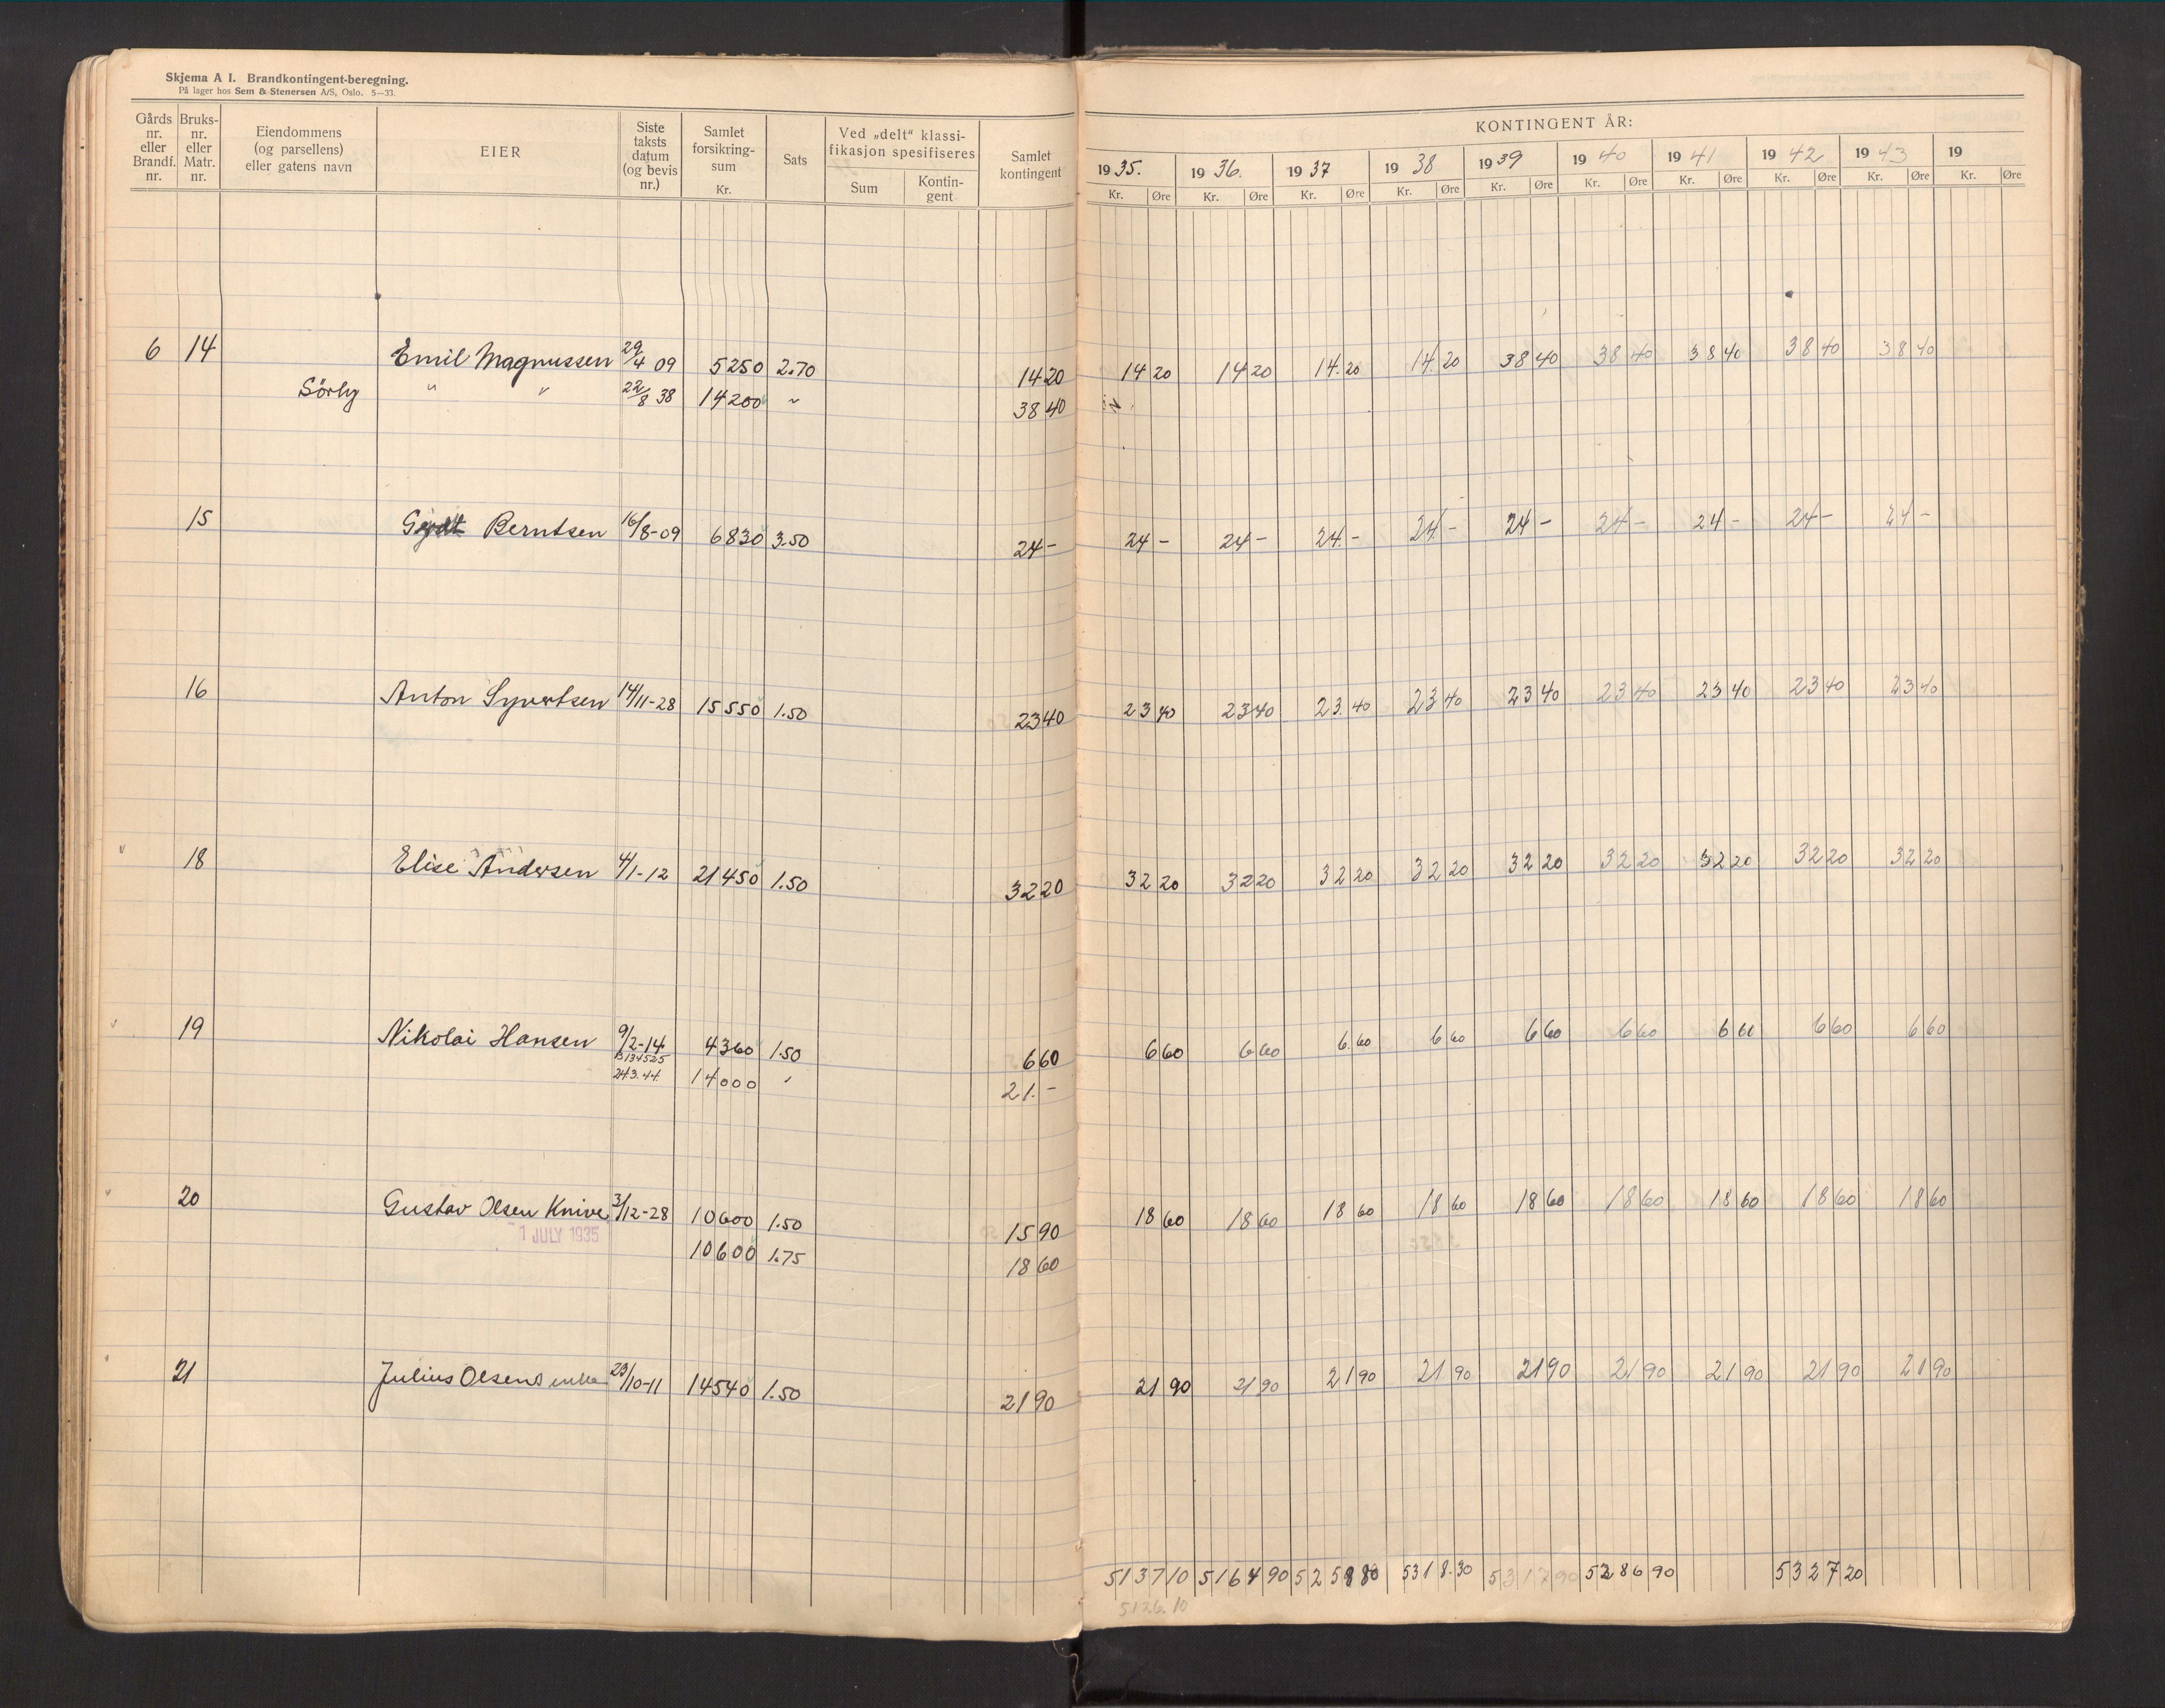 Skjema A I. Brandkontingent-beregning.
På lager hos Sem & Stenersen A/S, Oslo. 5—33.
Gårds nr. eller Brandf. nr.
Bruks- nr. eller Matr. nr.
Eiendommens (og parsellens) eller gatens navn
EIER
Siste taksts datum (og bevis nr.)
Samlet forsikring- sum Kr.
Sats
Ved „delt" klassi- fikasjon spesifiseres
Sum
Kontin- gent
Samlet kontingent
KONTINGENT ÅR:
1935. 1936. 1937 1938 1939 1940 1941 1942 1943 19
Kr. Øre Kr. Øre Kr. Øre Kr. Øre Kr. Øre Kr. Øre Kr. Øre Kr. Øre Kr. Øre Kr. Øre
6 14 Emil Magnussen 29/4 09 5250 2.70 14 20 14 20 14 20 14. 20 14. 20 38 40 38 40 38 40 38 40 38 40
Sörby " " 22/8 38 14200 " 38 40
15 Berntsen 16/8-09 6830 3.50 24 - 24 - 24 - 24. - 24. - 24 - 24 - 24 - 24 - 24 -
16 Anton Syvertsen 14/11-28 15550 1.50 23 40 23 40 23 40 23. 40 23 40 23 40 23 40 23 40 23 40 23 40
18 Elise Andersen 4/1-12 21450 1.50 32 20 32 20 32 20 32 20 32 20 32 20 32 20 32 20 32 20 32 20
19 Nikolai Hansen 9/2-14 4360 1.50 6 60 6 60 6 60 6. 60 6 60 6 60 6 60 6 60 6 60 6 60
B134525
24.3.44. 14000 " 21. -
20 Gustav Olsen Knive 3/12-28 10600 1.50 15 90 18 60 18 60 18 60 18 60 18 60 18 60 18 60 18 60 18 60
1 JULY 1935 10600 1.75 18 60
21 Julius Olsens enke 23/10-11 14540 1.50 21 90 21 90 21 90 21 90 21 90 21 90 21 90 21 90 21 90 21 90
5137 10 5164 90 5258 80 5318.30 5317 90 5286 90 5327 20
5126.10